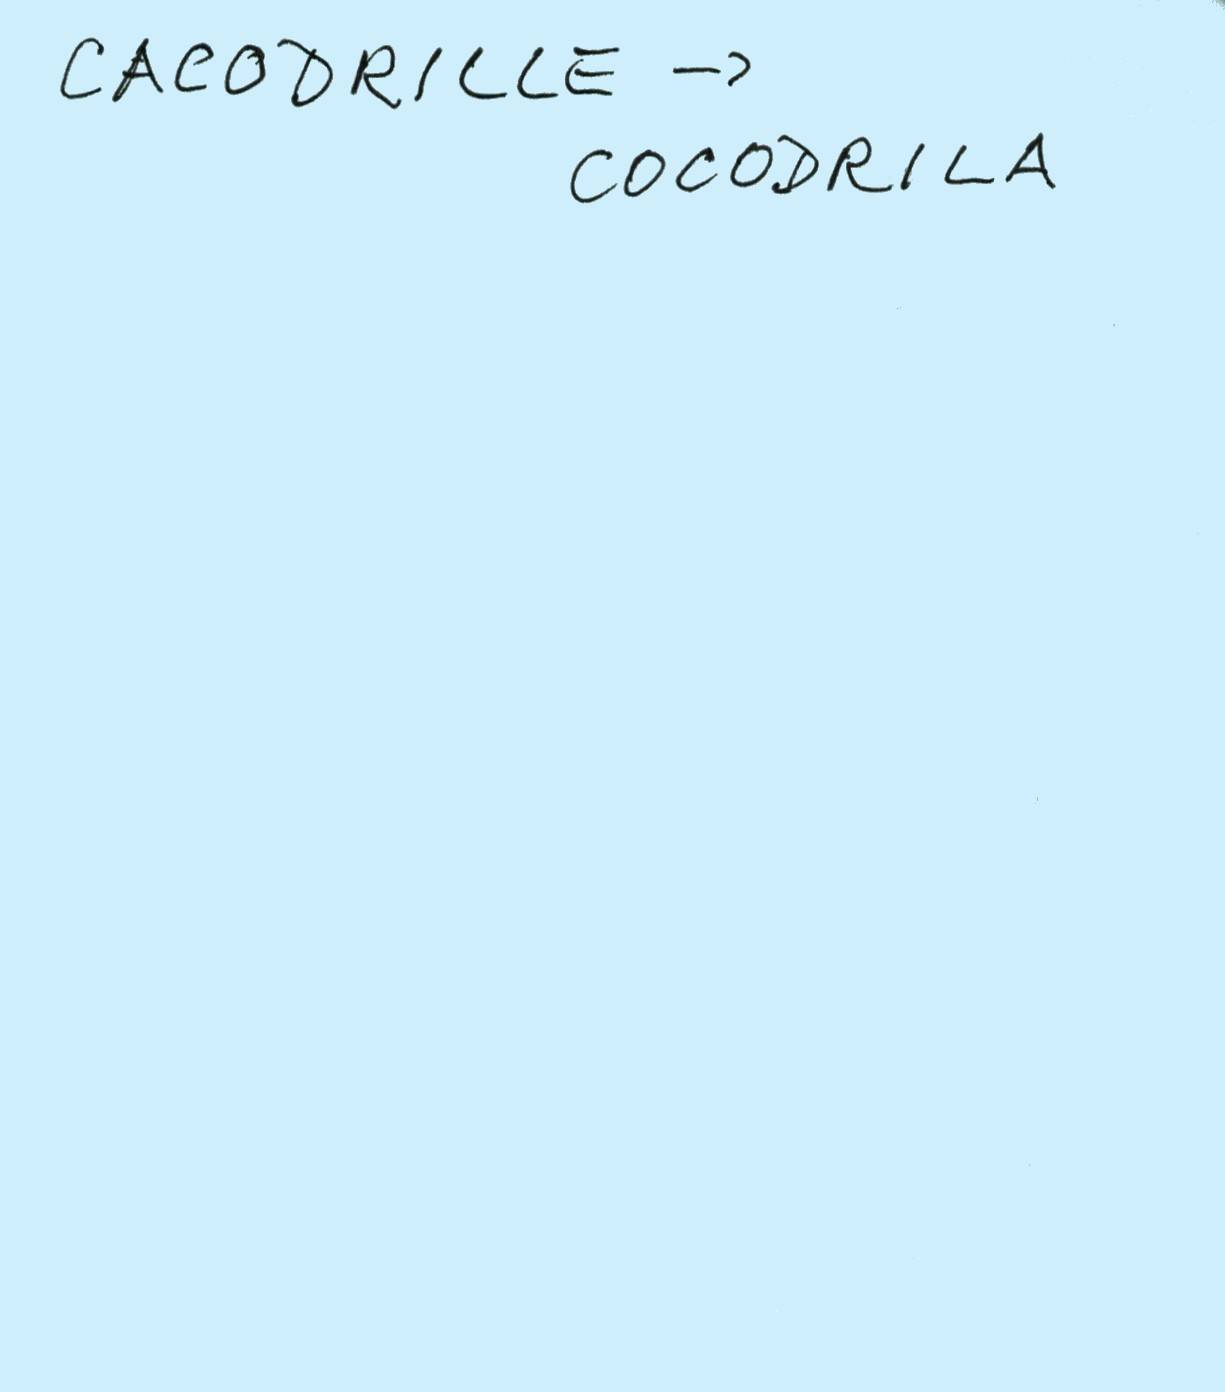 CACODRILLE ->
COCODRILA